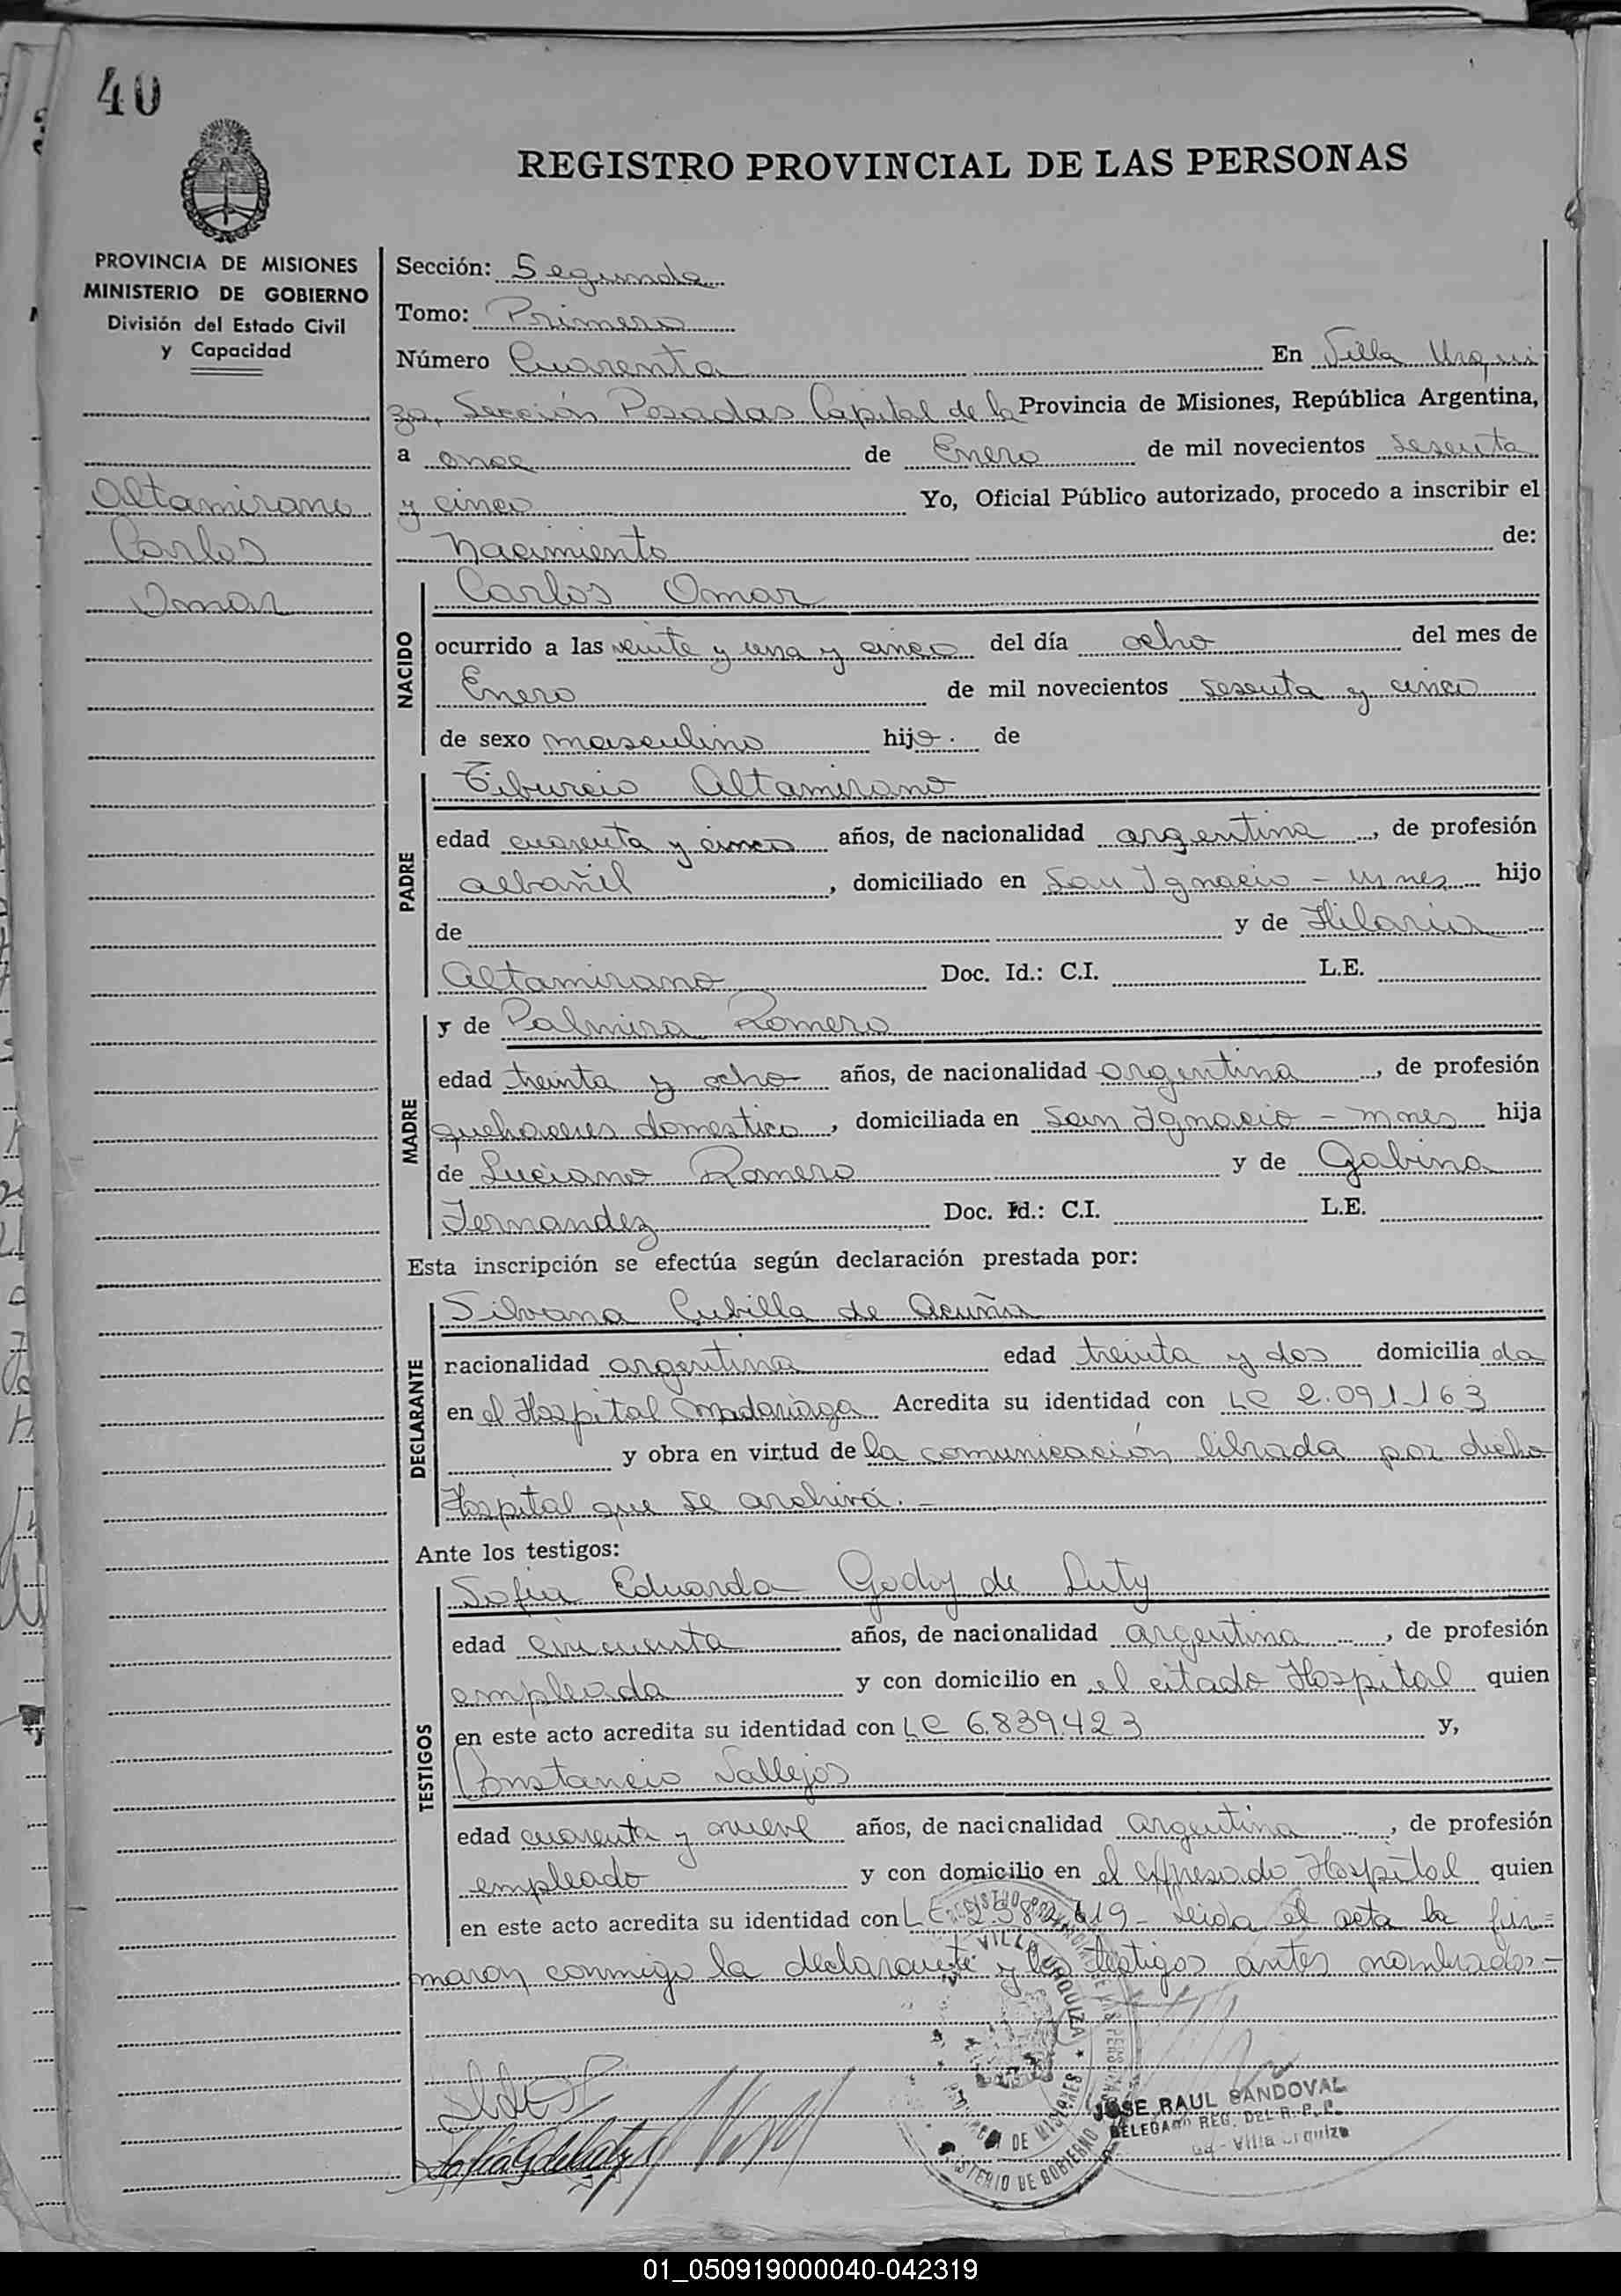 40
REGISTRO PROVINCIAL DE LAS PERSONAS
PROVINCIA DE MISIONES
MINISTERIO DE GOBIERNO
División del Estado Civil
y Capacidad
Altamirano
Carlos
Omar
Sección: Segunda
Tomo: Primero
Número Cuarenta En Villa Urqui
za, Sección Posadas Capital de la Provincia de Misiones, República Argentina,
a once de Enero de mil novecientos sesenta
y cinco Yo, Oficial Público autorizado, procedo a inscribir el
Nacimiento de:
NACIDO
Carlos Omar
ocurrido a las veinte y una y cinco del día ocho del mes de
Enero de mil novecientos sesenta y cinco
de sexo masculino hijo. de
PADRE
Tiburcio Altamirano
edad cuarenta y cinco años, de nacionalidad argentina, de profesión
albañil, domiciliado en San Ignacio - Mnes hijo
de y de Hilaria
Altamirano Doc. Id.: C.I. L.E.
MADRE
y de Palmira Romero
edad treinta y ocho años, de nacionalidad argentina, de profesión
quehaceres domestico, domiciliada en San Ignacio - Mnes hija
de Luciano Romero y de Gabina
Fernandez Doc. Id.: C.I. L.E.
Esta inscripción se efectúa según declaración prestada por:
DECLARANTE
Silvana Cubilla de Acuña
racionalidad argentina edad treinta y dos domicilia da
en el Hospital Madariaga Acredita su identidad con LC 2.091.163
y obra en virtud de la comunicación librada por dicho
Hospital que se archiva. -
Ante los testigos:
TESTIGOS
Sofia Eduarda Godoy de Luty
edad cincuenta años, de nacionalidad argentina, de profesión
empleada y con domicilio en el citado Hospital quien
en este acto acredita su identidad con LC 6.839.423 y,
Constancio Vallejos
edad cuarenta y nueve años, de nacionalidad argentina, de profesión
empleado y con domicilio en el expresado Hospital quien
en este acto acredita su identidad con LE - leida el acta la fir=
maron conmigo la declarante y los testigos antes nombrados -
VILLA URQUIZA
MINISTERIO DE GOBIERNO
JOSE RAUL SANDOVAL
DELEGADO REG. DEL R. P. P.
Villa Urquiza
01_050919000040-042319